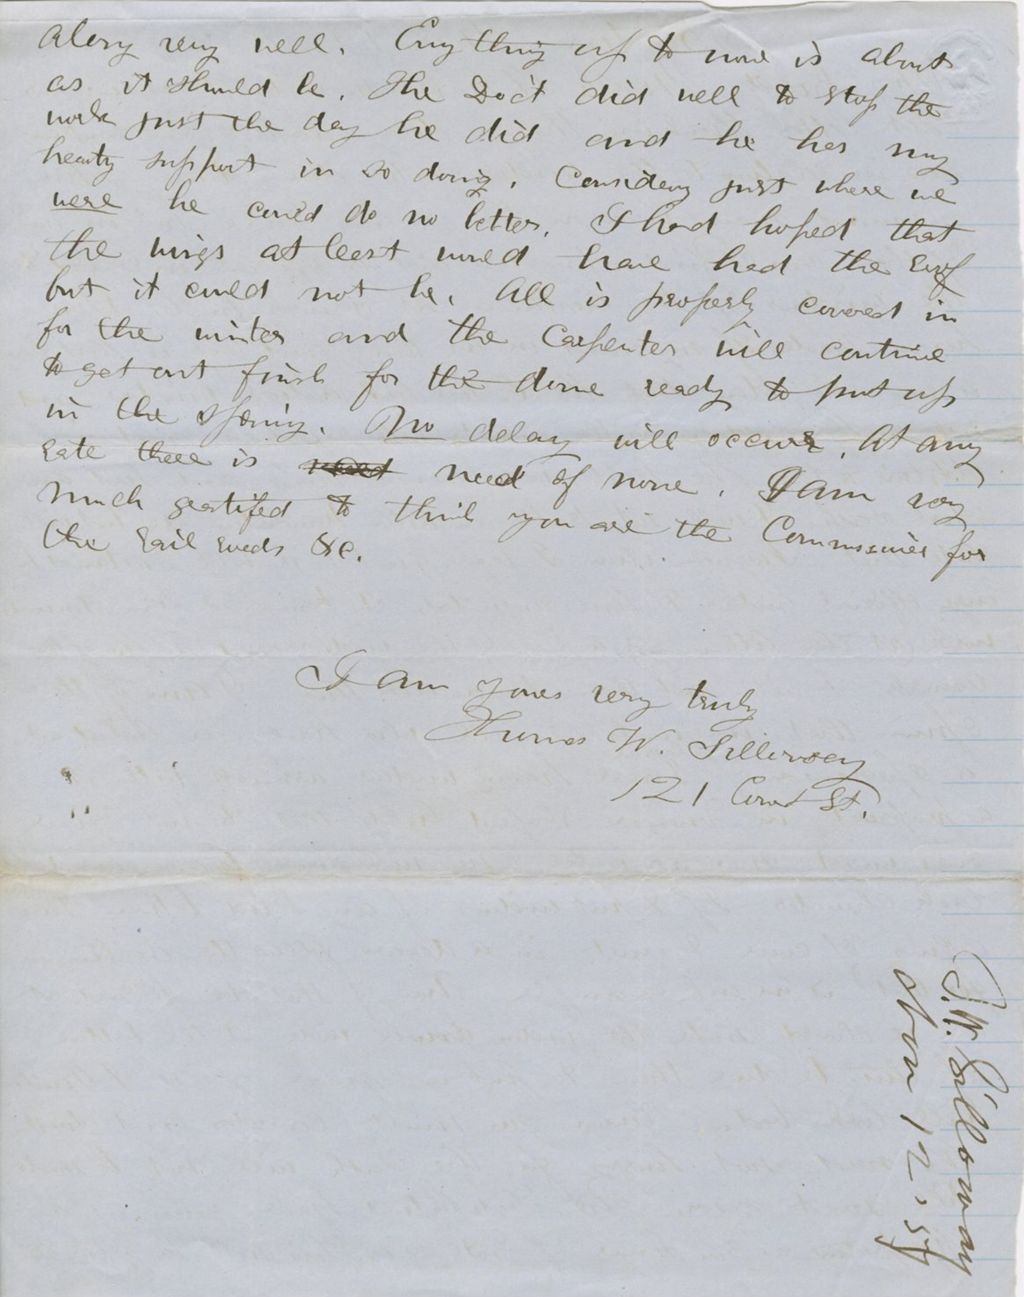 along very well. Everything up to now is about
as it should be. The Doct did well to stop the
work just the day he did and he has my
hearty support in so doing. Considering just where we
were he could do no better. I had hoped that
the wings at least would have had the roof
but it could not be. All is properly covered in
for the winter and the Carpenter will continue
to get out finish for the dome ready to put up
in the spring. No delay will occur. At any
rate there is need of none. I am very
much gratified to think you are the Commissioner for
the Rail Roads &c.
I am yours very truly
Thomas W. Silloway
121 Court St.
T.W. Silloway
Novr 12. 57